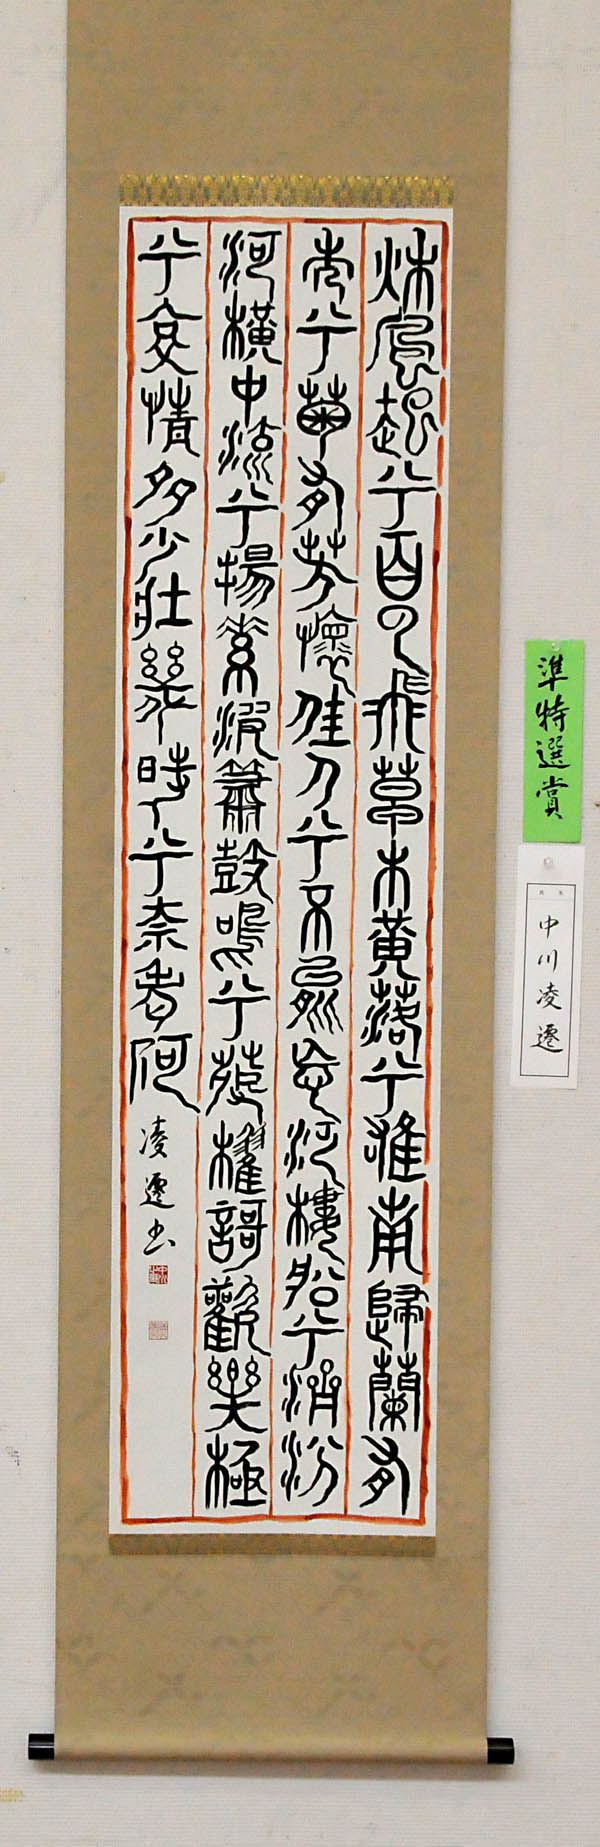 秋風起兮白云飛草木黃落兮雁南歸蘭有
秀兮菊有芳懷佳人兮不能忘汎樓船兮濟汾
河橫中流兮揚素波簫鼓鳴兮發櫂謌歡樂極
兮哀情多少壯幾時兮奈老何
凌遷書
準特選賞
中川凌遷